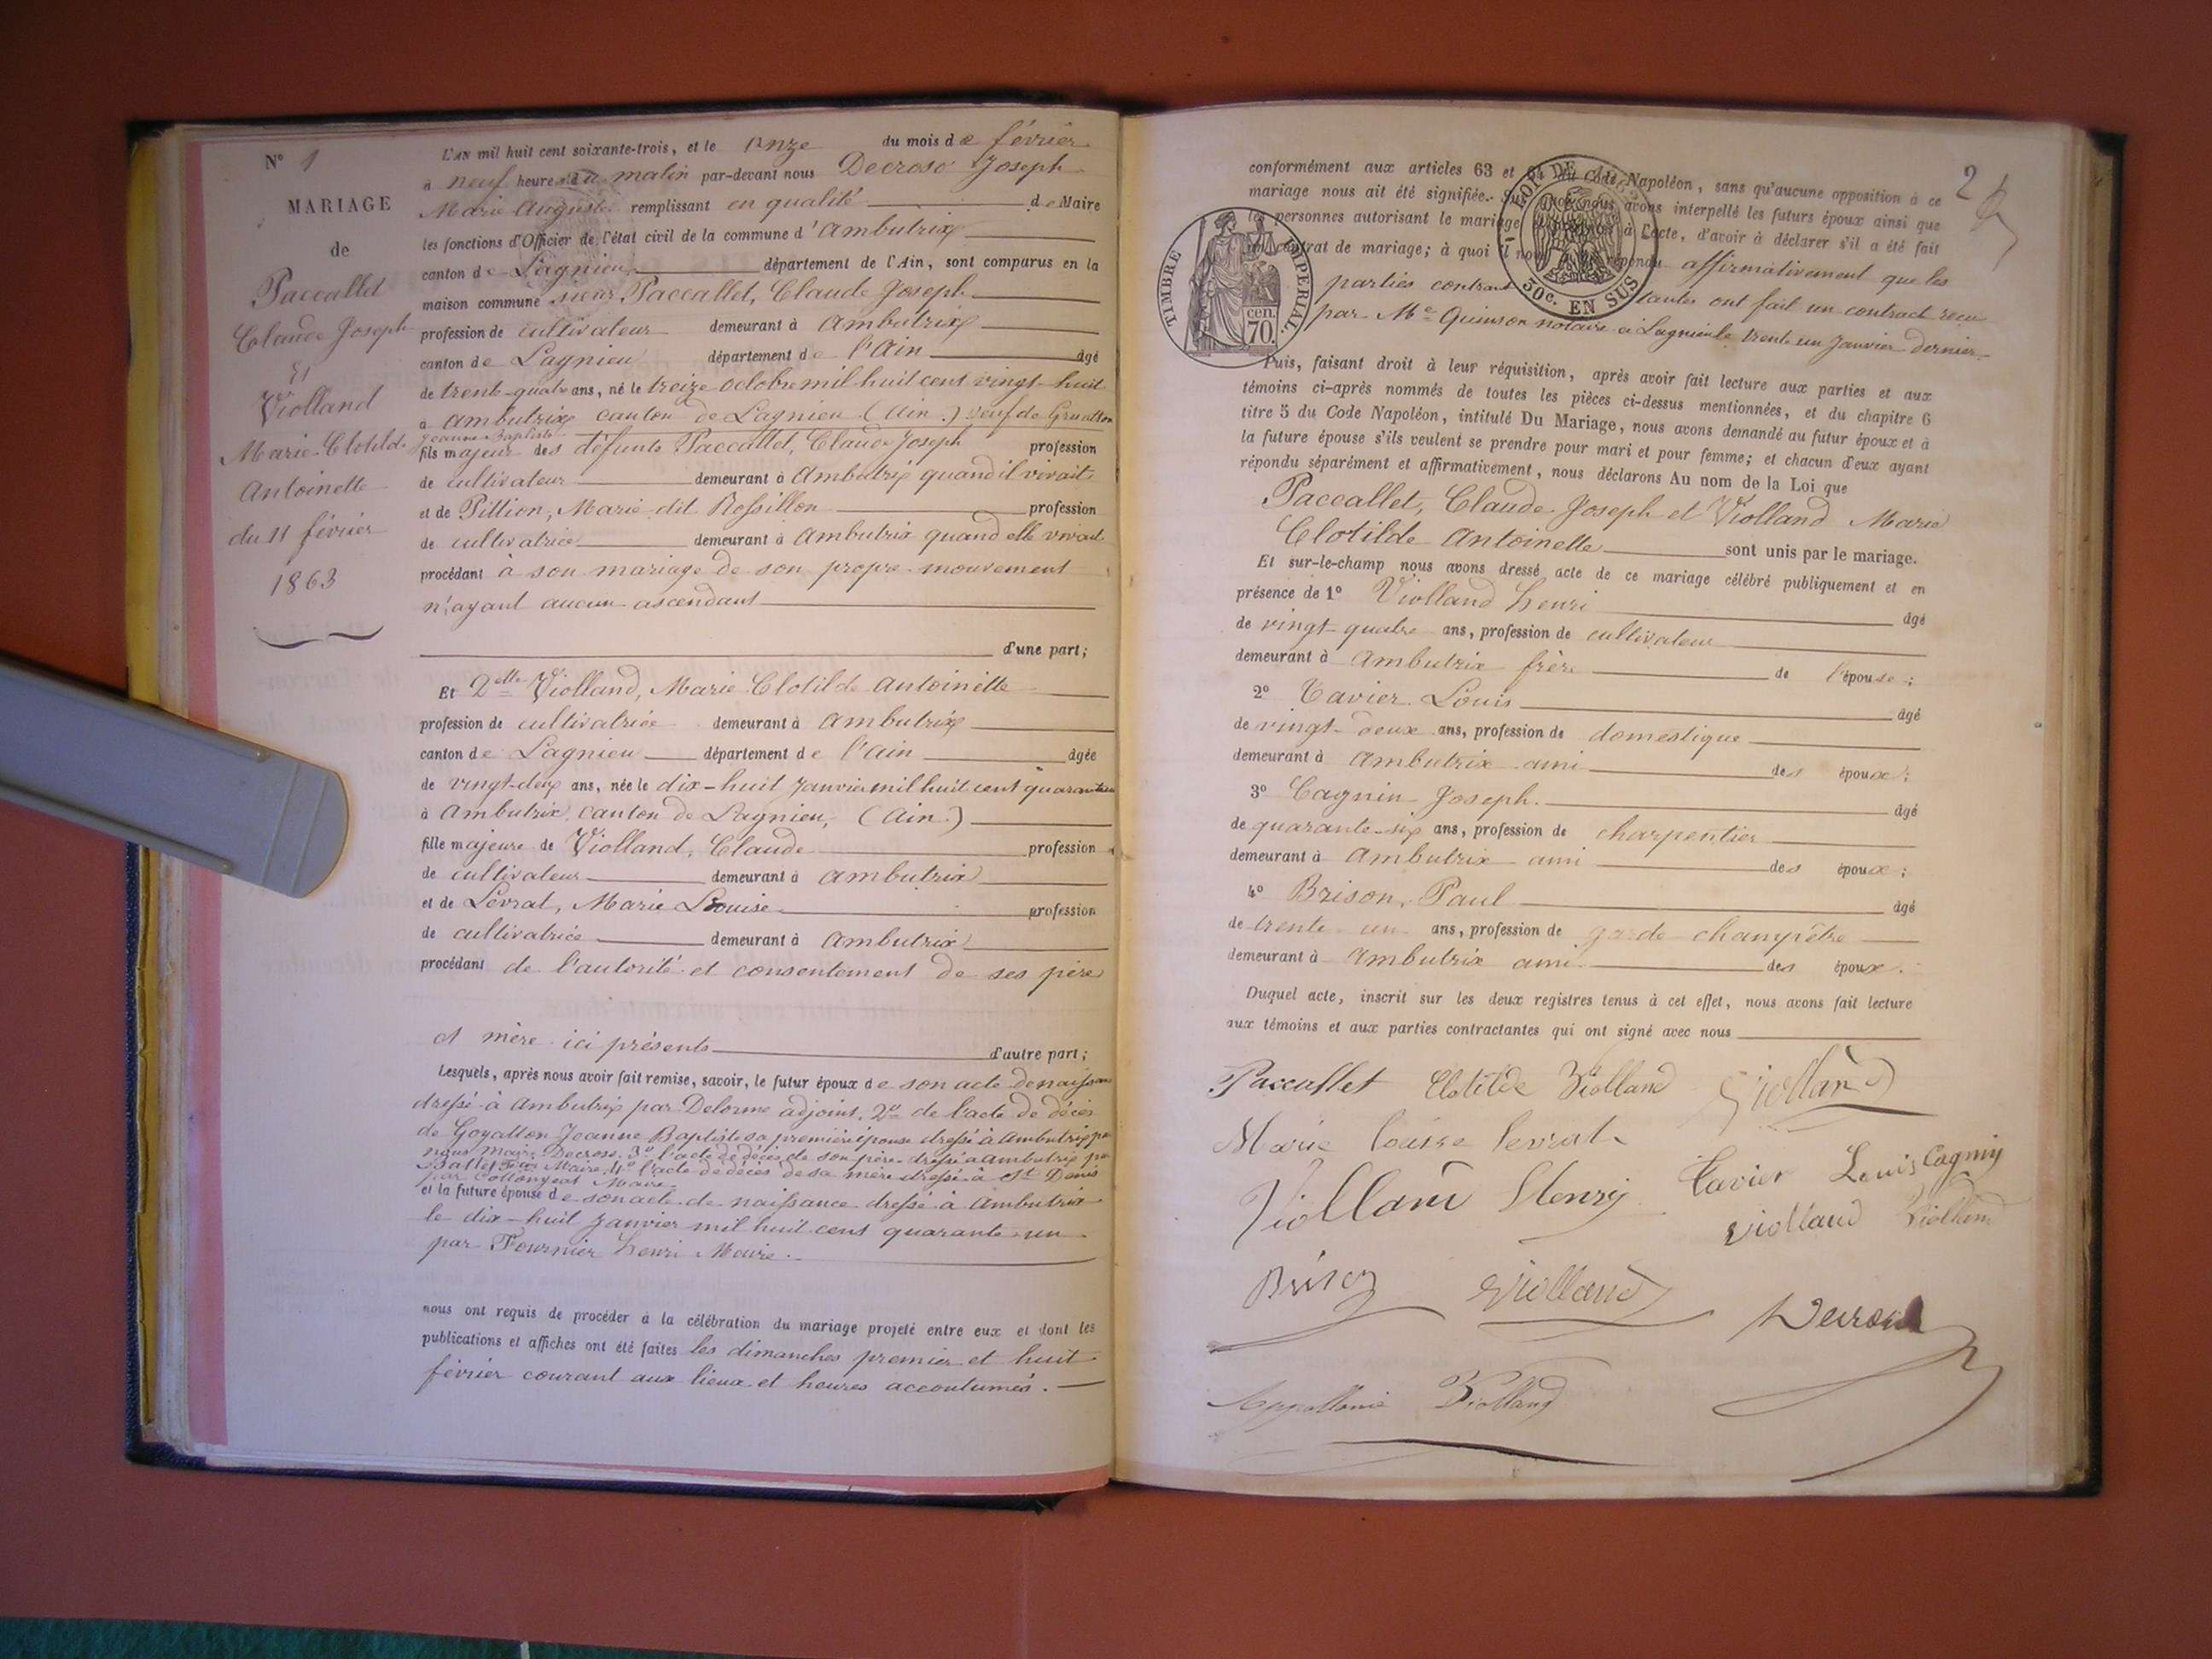 N° 1
MARIAGE
de
Paccallet
Claude Joseph
Et
Violland
Marie Clotilde
Antoinette
du 11 février
1863
L'AN mil huit cent soixante-trois, et le onze du mois de février
à neuf heures du matin par-devant nous Decroso Joseph
Marie Auguste remplissant en qualité de Maire
les fonctions d'Officier de l'état civil de la commune d'Ambutrix
canton de Lagnieu département de l'Ain, sont comparus en la
maison commune sieur Paccallet, Claude Joseph
profession de cultivateur demeurant à Ambutrix
canton de Lagnieu département de l'Ain âgé
de trente-quatre ans, né le treize octobre mil huit cent vingt-huit
à Ambutrix canton de Lagnieu (Ain.) veuf de
Jeanne Baptiste
fils majeur des défunts Paccallet, Claude Joseph profession
de cultivateur demeurant à Ambutrix quand il vivait
et de Pittion, Marie dit Rossillon profession
de cultivatrice demeurant à Ambutrix quand elle vivait
procédant à son mariage de son propre mouvement
n'ayant aucun ascendant
d'une part;
Et Delle Violland, Marie Clotilde Antoinette
profession de cultivatrice demeurant à Ambutrix
canton de Lagnieu département de l'Ain âgée
de vingt-deux ans, née le dix-huit Janvier mil huit cent quarante un
à Ambutrix, canton de Lagnieu, (Ain.)
fille majeure de Violland, Claude profession
de cultivateur demeurant à Ambutrix
et de Levrat, Marie Louise profession
de cultivatrice demeurant à Ambutrix
procédant de l'autorité et consentement de ses père
et mère ici présents d'autre part;
Lesquels, après nous avoir fait remise, savoir, le futur époux de son acte de naissance
dressé à Ambutrix par Delorme adjoint, 2° de l'acte de décès
de Goyatton Jeanne Baptiste sa première épouse dressé à Ambutrix par
nous Maire Decroso. 3° l'acte de décès de son père dressé à Ambutrix par
Maire, 4° l'acte de décès de sa mère dressé à St Denis
par Collonjeat Maire
et la future épouse de son acte de naissance dressé à Ambutrix
le dix-huit Janvier mil huit cent quarante un
par Fournier Henri Maire.
nous ont requis de procéder à la célébration du mariage projeté entre eux et dont les
publications et affiches ont été faites les dimanches premier et huit
février courant aux lieux et heures accoutumés.
2
conformément aux articles 63 et 64 du Code Napoléon, sans qu'aucune opposition à ce
mariage nous ait été signifiée. Sur quoi nous avons interpellé les futurs époux ainsi que
les personnes autorisant le mariage à l'acte, d'avoir à déclarer s'il a été fait
un contrat de mariage; à quoi il nous a répondu affirmativement que les
parties contractantes ont fait un contract recu
par Me Quinson notaire à Lagnieu le trente un Janvier dernier
TIMBRE IMPERIAL.
cen.
70.
50c. EN SUS
Puis, faisant droit à leur réquisition, après avoir fait lecture aux parties et aux
témoins ci-après nommés de toutes les pièces ci-dessus mentionnées, et du chapitre 6
titre 5 du Code Napoléon, intitulé Du Mariage, nous avons demandé au futur époux et à
la future épouse s'ils veulent se prendre pour mari et pour femme; et chacun d'eux ayant
répondu séparément et affirmativement, nous déclarons Au nom de la Loi que
Paccallet, Claude Joseph et Violland Marie
Clotilde Antoinette sont unis par le mariage.
Et sur-le-champ nous avons dressé acte de ce mariage célébré publiquement et en
présence de 1° Violland Henri âgé
de vingt-quatre ans, profession de cultivateur
demeurant à Ambutrix frère de l'épouse;
2° Tavier Louis âgé
de vingt-deux ans, profession de domestique
demeurant à Ambutrix ami des époux;
3° Cagnin Joseph. âgé
de quarante-six ans, profession de charpentier
demeurant à Ambutrix ami des époux;
4° Brison, Paul âgé
de trente un ans, profession de garde champêtre
demeurant à Ambutrix ami des époux.
Duquel acte, inscrit sur les deux registres tenus à cet effet, nous avons fait lecture
aux témoins et aux parties contractantes qui ont signé avec nous
Paccallet Clotilde Violland Violland
Marie louise levrat
Violland Henry Tavier Louis Cagnin
Violland Violland
Brison Violland Decroso
Appollonie Violland